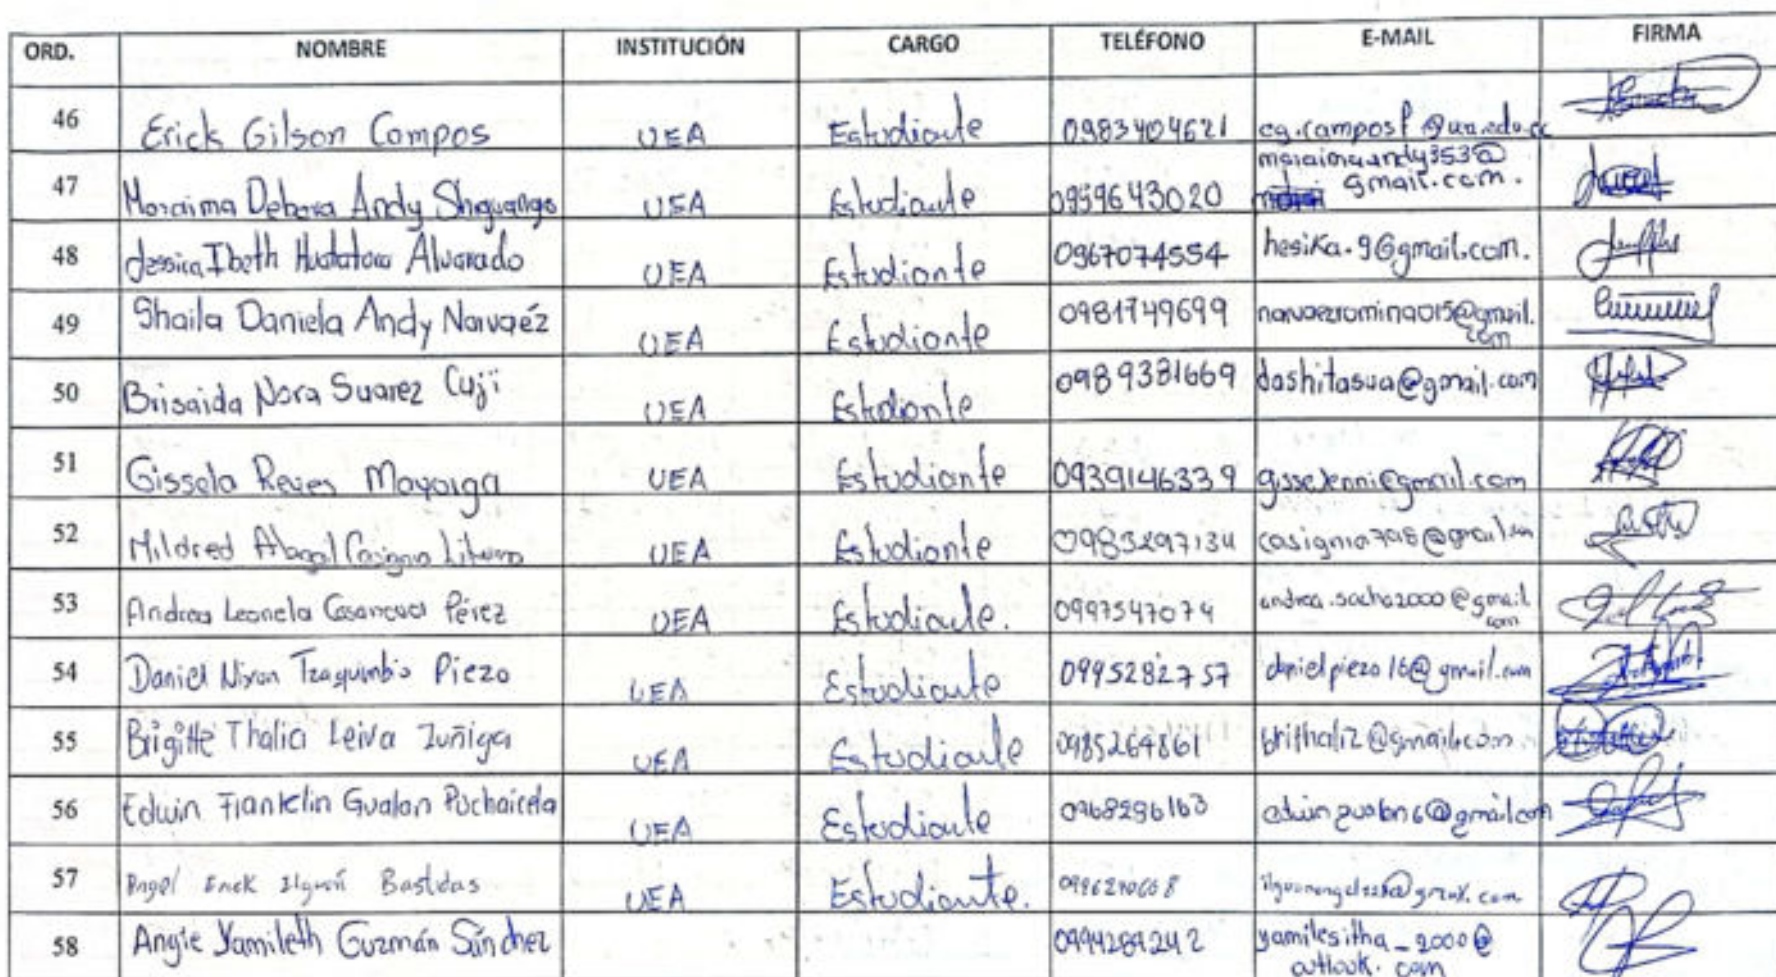 ORD. NOMBRE INSTITUCIÓN CARGO TELÉFONO E-MAIL FIRMA
46 Erick Gilson Campos UEA Estudiante 0983404621
47 Moraima Debora Andy Shiguango UEA Estudiante 0959643020 moraimaandy353@
gmail.com.
48 Jessica Ibeth Huatatoca Alvarado UEA Estudiante 0967074554 hesika.9@gmail.com.
49 Shaila Daniela Andy Narvaéz UEA Estudiante 0981749699 narvaezromina015@gmail.
com
50 Brisaida Nora Suarez Cuji UEA Estudiante 0989381669 dashitasua@gmail.com
51 Gissela Reyes Mayorga UEA Estudiante 0939146339
52 Mildred UEA Estudiante 0983297134
53 Andrea Leonela Casanova Pérez UEA Estudiante. 0997547074 andrea.sacha2000@gmail
com
54 Daniel Piezo UEA Estudiante 0995282757 danielpiezo16@gmail.com
55 Brigitte Thalia Leiva Zuñiga UEA Estudiante 0985264861 brithali2@gmail.com
56 Edwin Franklin Gualan Puchaicela UEA Estudiante 0968296163
57 Angel Erick Bastidas UEA Estudiante.
58 Angie Yamileth Guzmán Sánchez 0994289242 yamilesitha_2000@
outlook.com